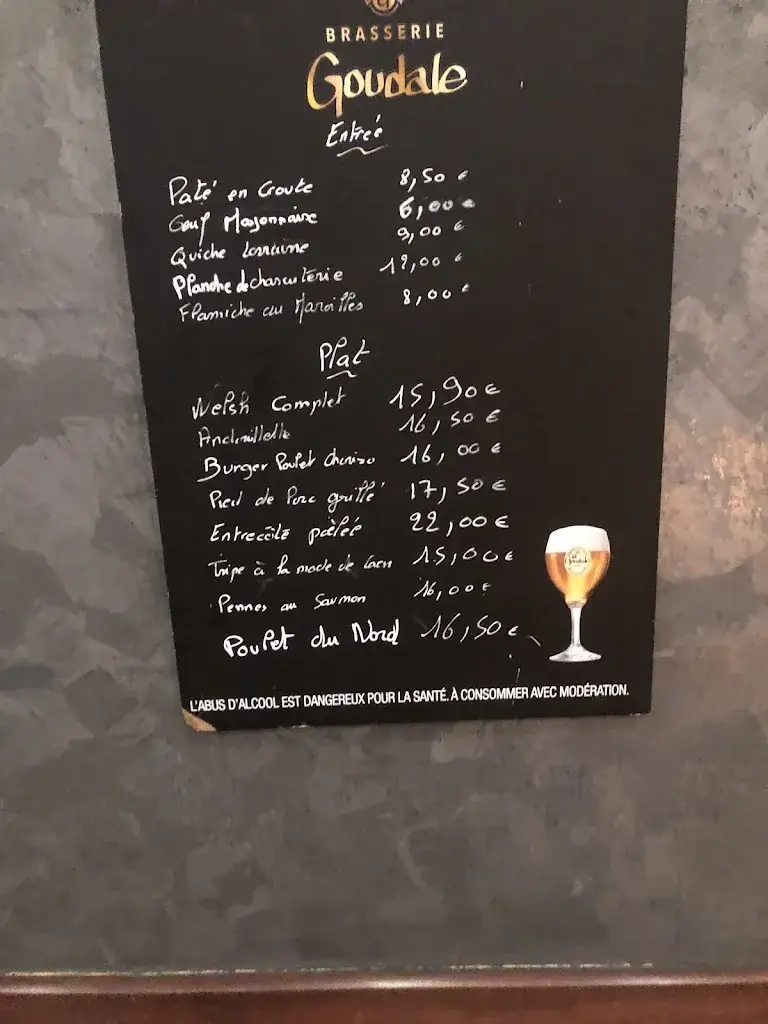 BRASSERIE
Goudale
Entrée
Paté en Croute 8,50 €
Oeuf Mayonnaise 6,00 €
Quiche Lorraine 9,00 €
Planche de charcuterie €
Flamiche au Maroilles 8,00 €
Plat
Welsh Complet 15,90 €
Andouillette 16,50 €
Burger Poulet Chorizo 16,00 €
Pied de Porc grillé 17,50 €
Entrecôte poêlée 22,00 €
Tripe à la mode de Caen 15,00 €
Pennes au Saumon 16,00 €
Poulet du Nord 16,50 €
L'ABUS D'ALCOOL EST DANGEREUX POUR LA SANTÉ. À CONSOMMER AVEC MODÉRATION.